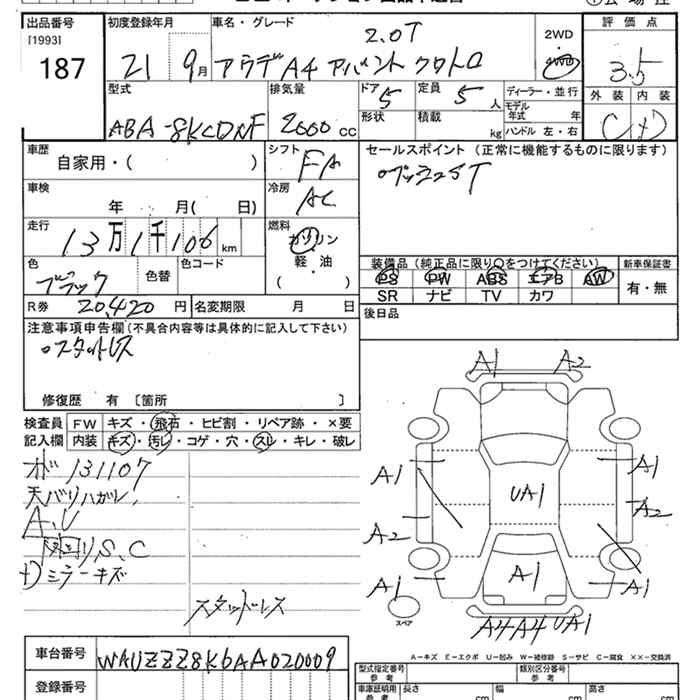 出品番号
[1993]
187
初度登録年月
21 9月
車名・グレード
2.0T
アウディA4 アバント クワトロ
2WD
4WD
評価点
3.5
型式
ABA-8KCDNF
排気量
2000 cc
ドア
5
定員
5 人
ディーラー・並行
モデル年式 年
外装 内装
C
形状
積載 kg
ハンドル 左・右
車歴
自家用・( )
シフト
FA
セールスポイント (正常に機能するものに限ります)
車検
年 月( 日)
冷房
AC
走行
13万1千106 km
燃料
ガソリン
軽・油
( )
装備品 (純正品に限り○をつけてください)
新車保証書
PS PW ABS エアB AW
有・無
SR ナビ TV カワ
色
ブラック
色替
色コード
R券 20,420 円
名変期限 月 日
後日品
注意事項申告欄(不具合内容等は具体的に記入して下さい)
○スタットレス
修復歴 有 [箇所 ]
検査員
記入欄
FW キズ・飛石・ヒビ割・リペア跡・×要
内装 キズ・汚レ・コゲ・穴・スレ・キレ・破レ
131107
天バリハガレ
A.U
S.C
ミラーキズ
スタッドレス
A1 A2
A1 A1
UA1
A2 A2
A1 A1 A1
スペア
A4 A4 UA1
A－キズ E－エクボ U－凹み W－補修跡 S－サビ C－腐食 ××－交換済
車台番号
WAUZZZ8K6AA020009
登録番号
型式指定番号
参考
類別区分番号
参考
車庫証明用
参考
長さ cm
幅 cm
高さ cm